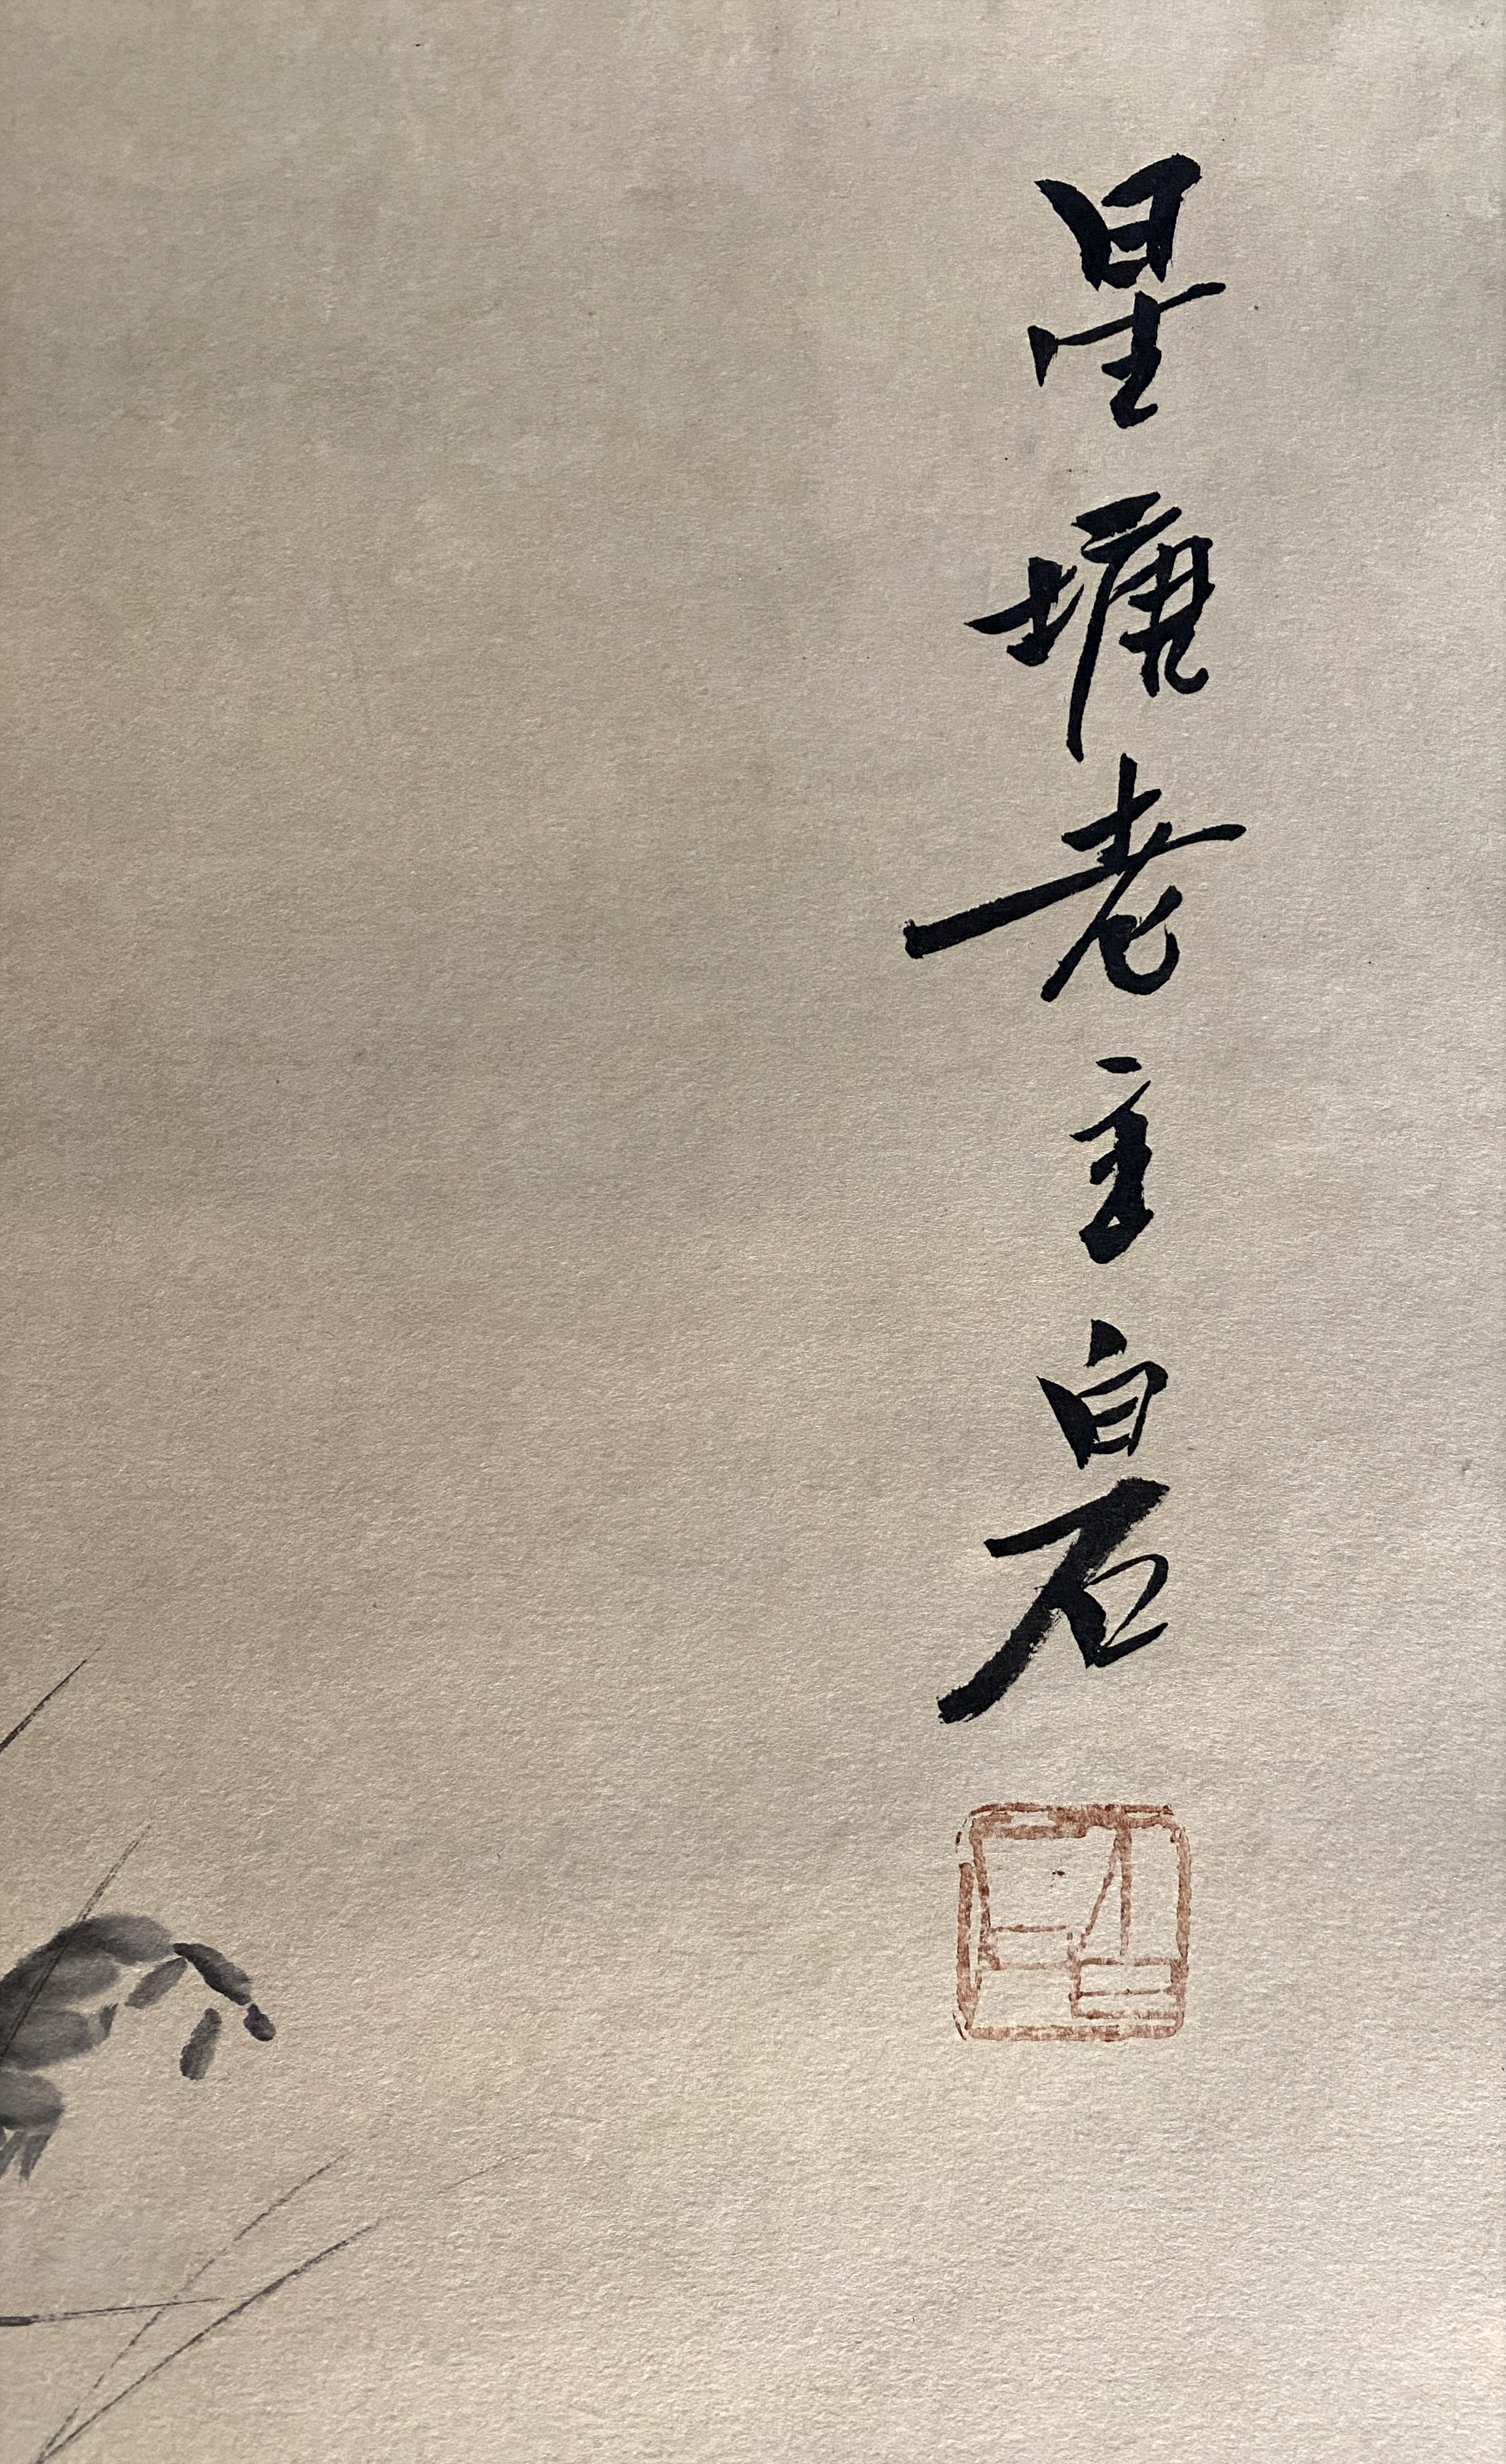 星塘老主白石